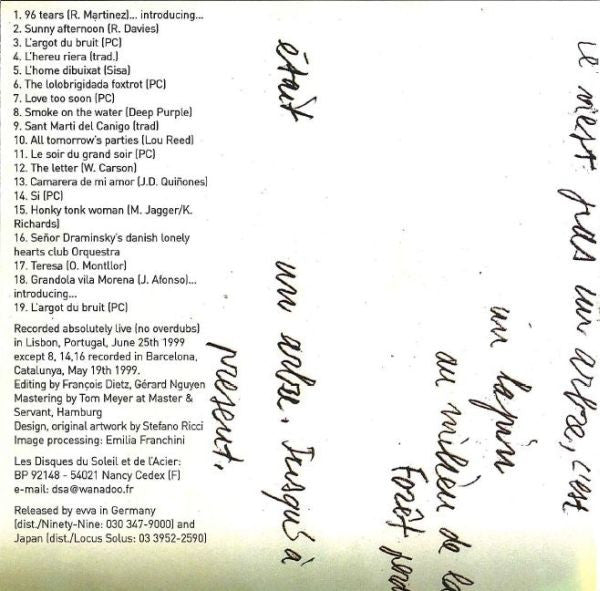 1. 96 tears (R. Martinez)... introducing...
2. Sunny afternoon (R. Davies)
3. L'argot du bruit (PC)
4. L'hereu riera (trad.)
5. L'home dibuixat (Sisa)
6. The lolobrigidada foxtrot (PC)
7. Love too soon (PC)
8. Smoke on the water (Deep Purple)
9. Sant Marti del Canigo (trad)
10. All tomorrow's parties (Lou Reed)
11. Le soir du grand soir (PC)
12. The letter (W. Carson)
13. Camarera de mi amor (J.D. Quiñones)
14. Si (PC)
15. Honky tonk woman (M. Jagger/K.
Richards)
16. Señor Draminsky's danish lonely
hearts club Orquestra
17. Teresa (O. Montllor)
18. Grandola vila Morena (J. Afonso)...
introducing...
19. L'argot du bruit (PC)
Recorded absolutely live (no overdubs)
in Lisbon, Portugal, June 25th 1999
except 8, 14,16 recorded in Barcelona,
Catalunya, May 19th 1999.
Editing by François Dietz, Gérard Nguyen
Mastering by Tom Meyer at Master &
Servant, Hamburg
Design, original artwork by Stefano Ricci
Image processing: Emilia Franchini
Les Disques du Soleil et de l'Acier:
BP 92148 - 54021 Nancy Cedex (F)
e-mail: dsa@wanadoo.fr
Released by evva in Germany
(dist./Ninety-Nine: 030 347-9000) and
Japan (dist./Locus Solus: 03 3952-2590)
ce n'est pas un arbre, c'est
un lapin
au milieu de la
Forêt
était un arbre. Jusqu'à
présent.